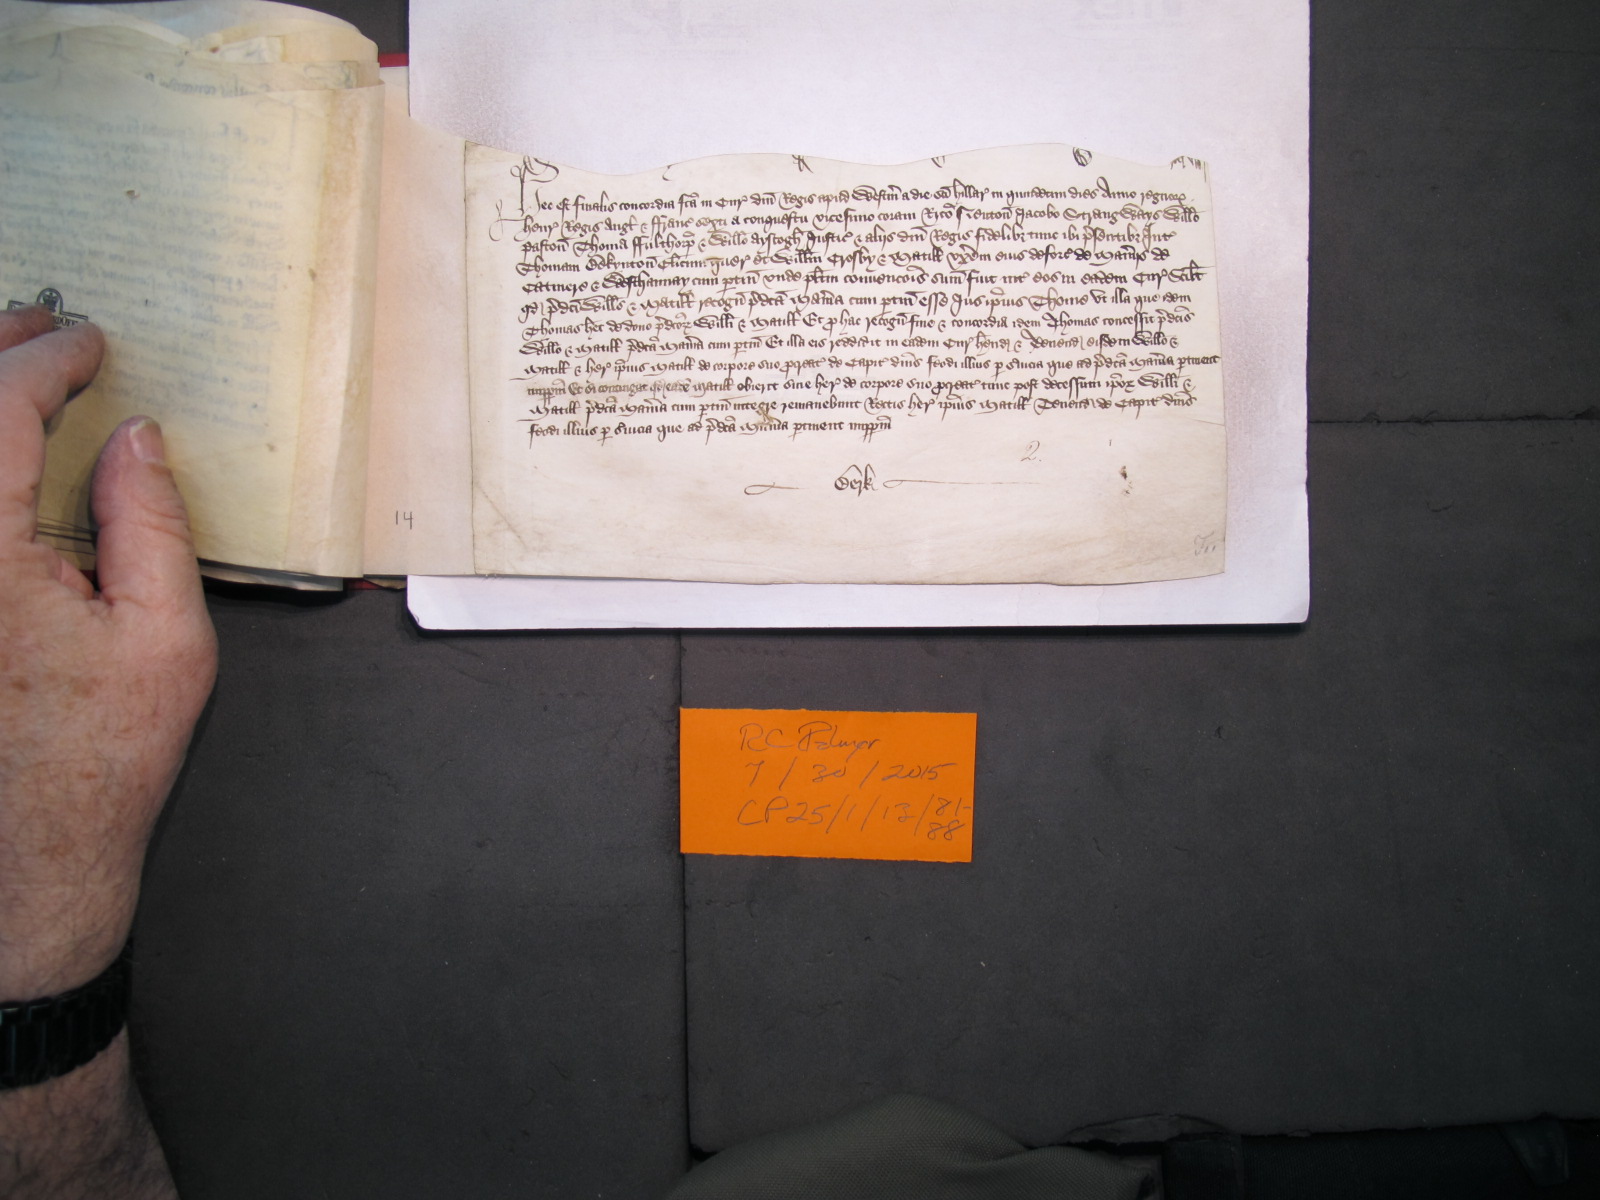 Hec est finalis concordia fca in Cur dni Regis apud Westm a die sci hillar in quindecim dies Anno regnor
henr Regis Angl & ffranc sexti a conquestu vicesimo coram Rico Neuton Jacobo Strangways Willo
Paston Thoma ffulthorp & Willo Ayscogh Justic & alijs dni Regis fidelibz tunc ibi psentibz Int
Thomam Bekynton Clicum quer Et Willm Crosby & Matill vxem eius deforc de Manijs de
Catmere & Westhannay cum ptin vnde plitm convencois sum fuit int eos in eadem Cur Scilt
qd pdci Willo & Matill recogn pdca Mania cum ptin esse Jus ipius Thome vt illa que idem
Thomas het de dono pdcor Willi & Matill Et p hac recogn fine & concordia idem Thomas concessit pdcis
Willo & Matill pdca Mania cum ptin Et illa eis reddidit in eadem Cur hend & Tenend eisdem Willo &
Matill & her ipius Matill de corpore suo pcreat de Capit dnis feodi illius p svicia que ad pdca Mania ptinent
imppm Et si contingat qd eadm Matill obierit sine her de corpore suo pcreat tunc post decessum ipor Willi &
Matill pdca Mania cum ptin integre remanebunt Rectis her ipius Matill Tenend de Capit dnis
feodi illius p svicia que ad pdca Mania ptinent imppm
2.
Berk
14
RC Palmer
7/30/2015
CP25/1/13/81-
88